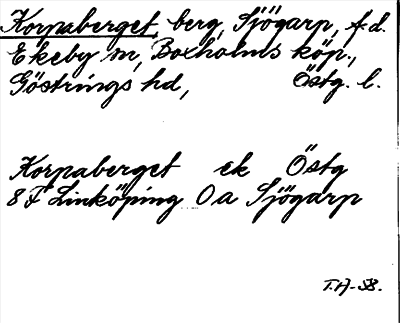 Korpaberget, berg, Sjögarp, f.d.
Ekeby sn, Boxholms köp.,
Göstrings hd, Östg. l.
Korpaberget ek Östg
8F Linköping 0a Sjögarp
T.H-58.